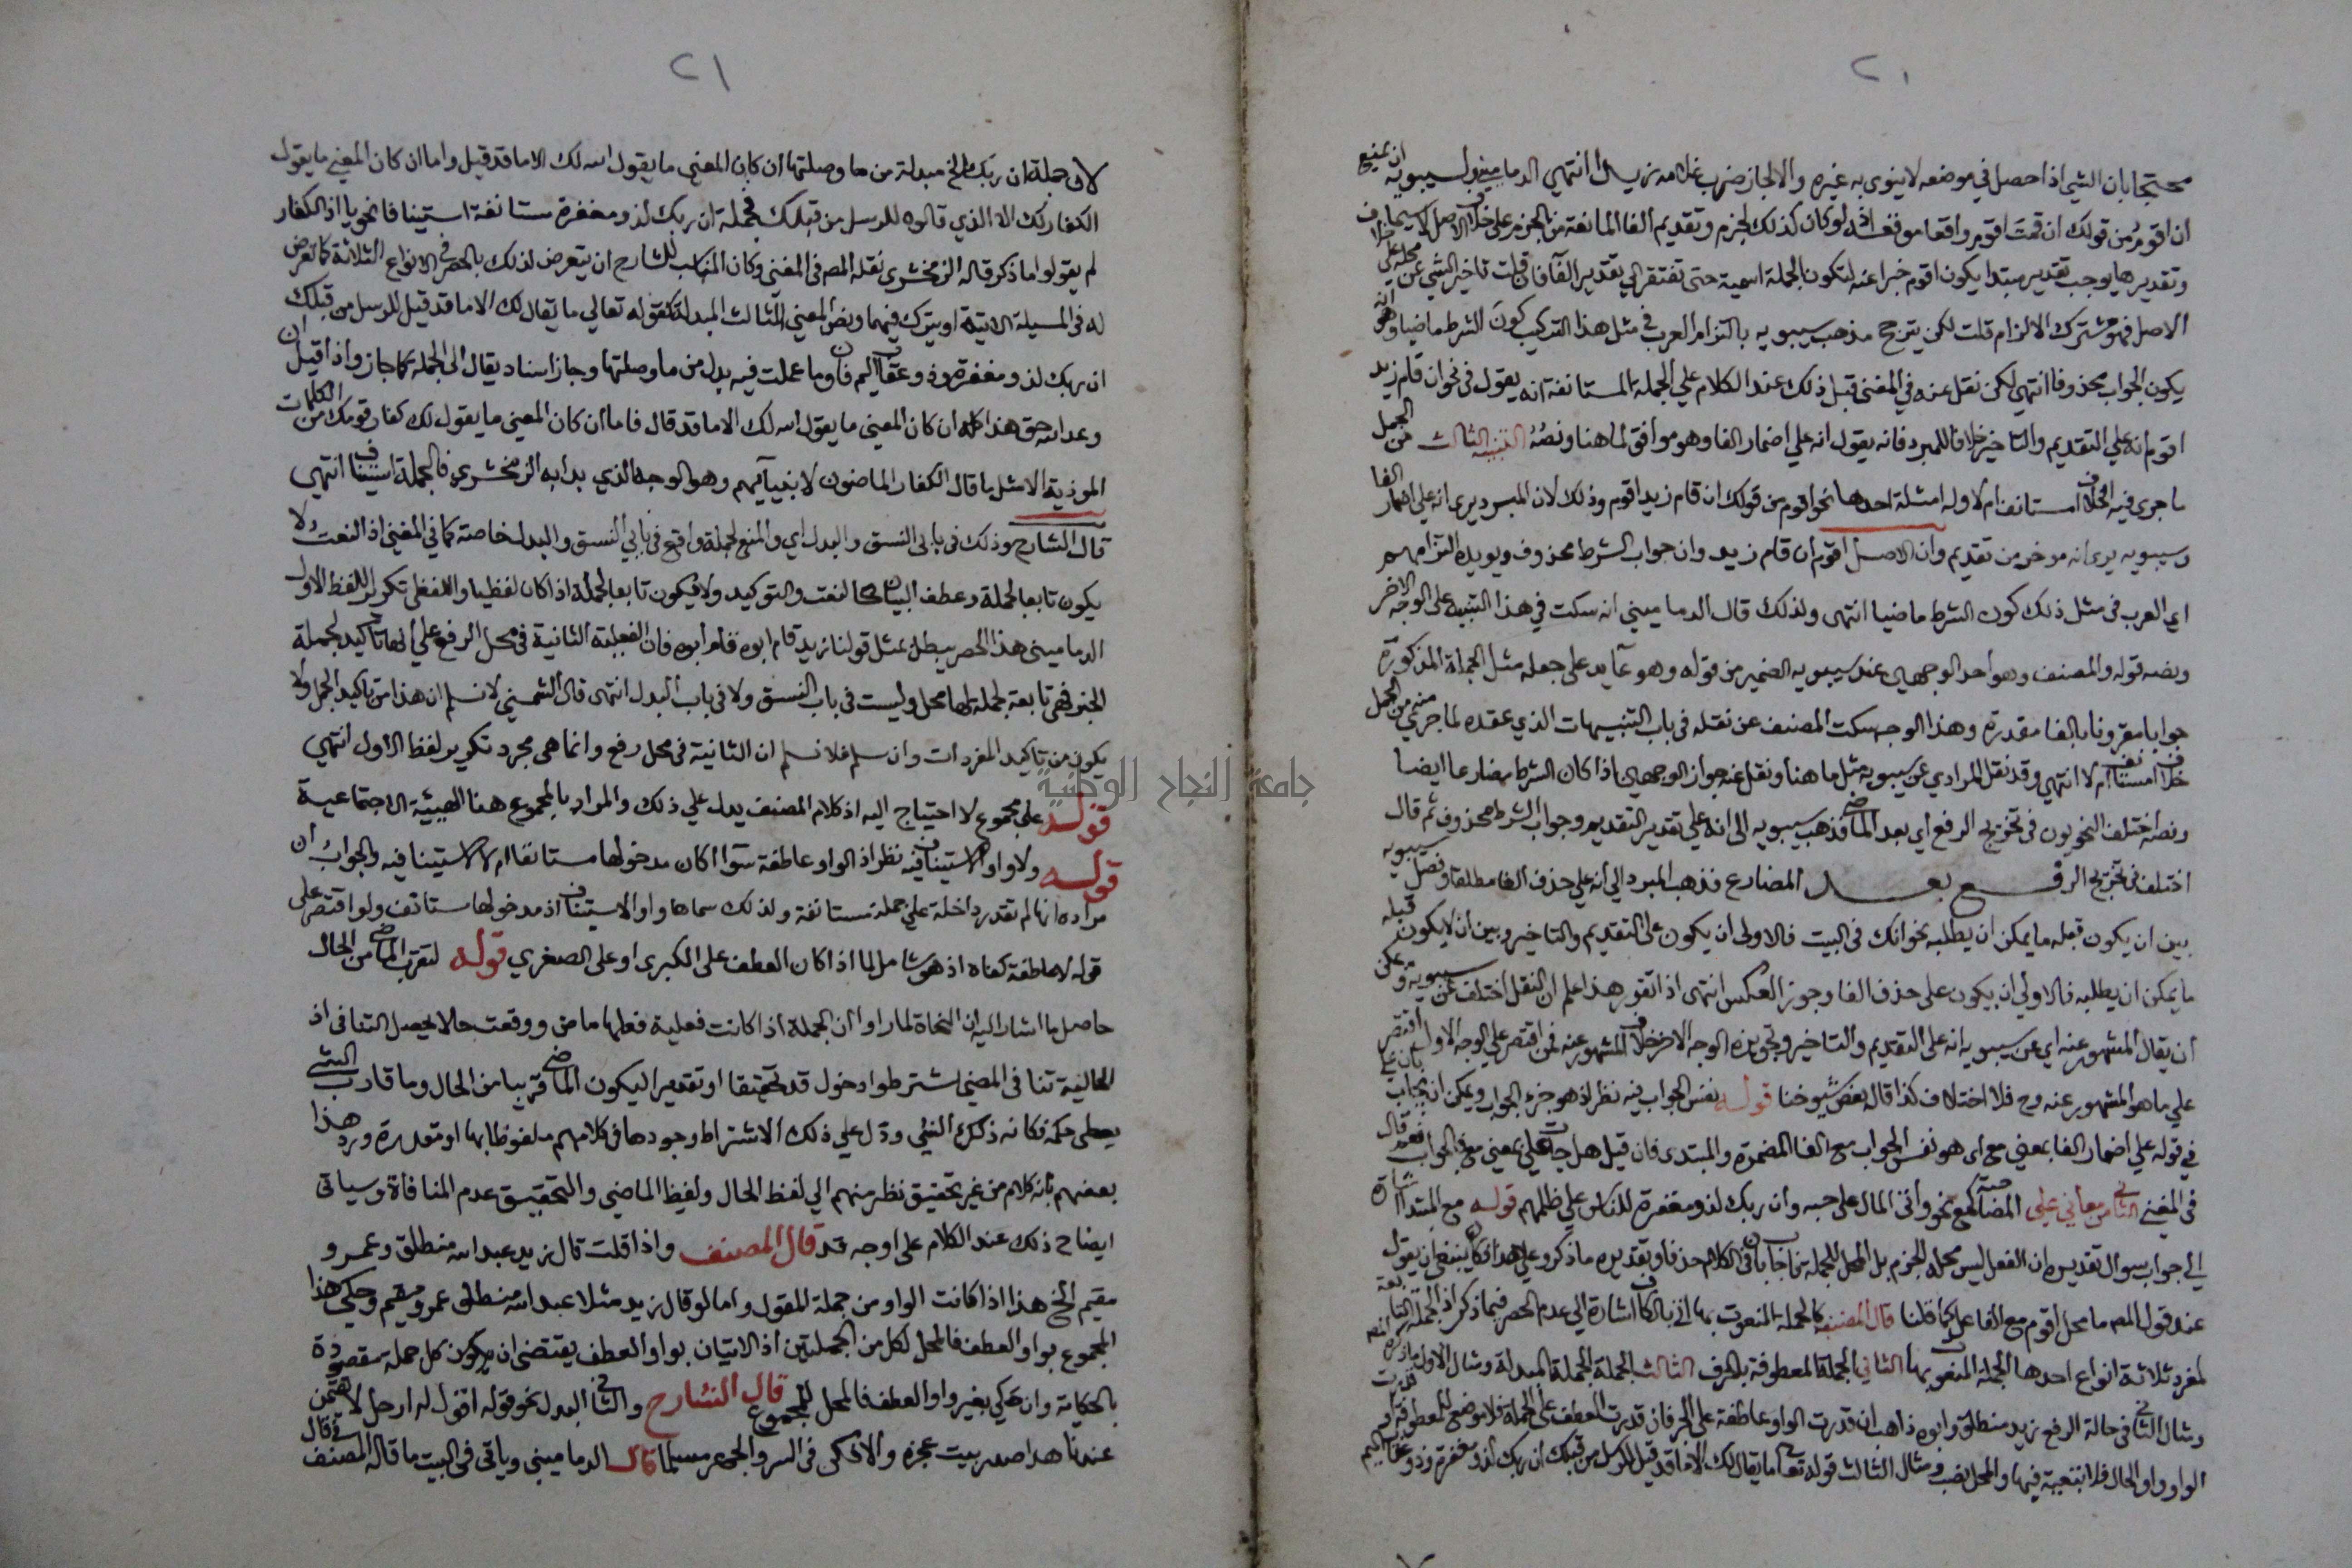 ٢٠
محتجا بان الشي اذا حصل في موضعه لا ينوي به غيره والا لجاز ضرب غلامه زيدا انتهي الدماميني ولسيبويه ان يمنع
ان اقوم من قولك ان قمت اقوم واقعا موقعه اذ لو كان كذلك لجزم وتقديم الفا المانعة من الجزم علي خلاف الاصل
وتقديرها يوجب تقدير مبتدا يكون اقوم خبرا عنه لتكون الجملة اسمية حتى تفتقر الي تقدير الفا فان قلت تاخير الشي عن محله علي خلاف
الاصل فهو مشترك الالزام قلت لكن يترجح مذهب سيبويه بالتزام العرب في مثل هذا التركيب كون الشرط ماضيا
يكون الجواب محذوفا انتهي لكن نقل عنه في المغني قبل ذلك عند الكلام علي الجملة المستانفة انه يقول في نحو ان قام زيد
اقوم انه علي التقديم والتاخير خلافا للمبرد فانه يقول انه علي اضمار الفا وهو موافق لما هنا ونصه التنبيه الثالث من الجمل
ما جري فيه الخلاف امستانف ام لا وله امثلة احدها نحو اقوم من قولك ان قام زيد اقوم وذلك لان المبرد يري انه علي اضمار الفا
وسيبويه يري انه موخر من تقديم وان الاصل اقوم ان قام زيد وان جواب الشرط محذوف ويويده التزامهم
اي العرب في مثل ذلك كون الشرط ماضيا انتهى ولذلك قال الدماميني انه سكت في هذا التنبيه علي الوجه الاخر
ونصه قوله والمصنف وهو احد الوجهين عند سيبويه الضمير من قوله وهو عايد علي جعله مثل الجملة المذكورة
جوابا مقرونا بالفا مقدرة وهذا الوجه سكت المصنف عن نقله في باب التنبيهات الذي عقده لما جري فيه من الجمل
خلاف امستانف ام لا انتهي وقد نقل المرادي عن سيبويه مثل ما هنا ونقل عنه جواز الوجهين اذا كان الشرط مضارعا ايضا
ونصه اختلف النحويون في تخريج الرفع اي بعد الماضي فذهب سيبويه الى انه علي تقدير التقديم وجواب الشرط محذوف ثم قال
اختلف في تخريج الرفع بعد المضارع فذهب المبرد الي انه علي حذف الفا مطلقا وفصل سيبويه
بين ان يكون قبله ما يمكن ان يطلبه نحو انك في البيت فالاولى ان يكون على التقديم والتاخير وبين ان لا يكون قبله
ما يمكن ان يطلبه فالاولي ان يكون علي حذف الفا وجوز العكس انتهى اذا تقرر هذا علم ان النقل اختلف عن سيبويه
ان يقال المشهور عنه اي عن سيبويه انه على التقديم والتاخير وتجويزه الوجه الاخر خلاف المشهور عنه فمن اقتصر علي الوجه الاول اقتصر
علي ما هو المشهور عنه وح فلا اختلاف كذا قاله بعض شيوخنا قوله نفس الجواب فيه نظر اذ هو جزء الجواب ويمكن ان يجاب
في قوله علي اضمار الفا بمعني مع اي هو نفس الجواب مع الفا المضمرة والمبتدى فان قيل هل جات علي بمعني مع فالجواب نعم قال
في المغني الثاني من معاني علي المصاحبة كمع نحو واتى المال على حبه وان ربك لذو مغفرة للناس علي ظلمهم قوله مع المبتدا
الي جواب سوال تقديره ان الفعل ليس محله الجزم بل المحل للجملة فاجاب بان في الكلام حذفا وتقديره ما ذكر وعلي هذا فكان ينبغي ان يقول
عند قول المص ما محل اقوم مع الفاعل كما قلنا قال المصنف كالجملة المنعوت بها اتى بالكاف اشارة الي عدم الحصر فيما ذكر اذ الجملة التابعة
لمفرد ثلاثة انواع احدها الجملة المنعوت بها الثاني الجملة المعطوفة بالحرف الثالث الجملة المبدلة ومثال الاول
ومثال الثاني في حالة الرفع زيد منطلق وابوه ذاهب ان قدرت الواو عاطفة على الخبر فان قدرت العطف علي الجملة فلا موضع للمعطوفة
الواو واو الحال فلا تبعية فيها والمحل نصب ومثال الثالث قوله تعالى ما يقال لك الا ما قد قيل للرسل من قبلك ان ربك لذو مغفرة وذو عقاب اليم
٢١
لان جملة ان ربك الخ مبدلة من ما وصلتها ان كان المعني ما يقول الله لك الا ما قد قيل واما ان كان المعني ما يقول
الكفار لك الا الذي قالوه للرسل من قبلك فجملة ان ربك لذو مغفرة مستانفة استينافا نحويا اذ الكفار
لم يقولوا ما ذكر قاله الزمخشري نقله المص في المغني وكان المناسب للشارح ان يتعرض لذلك بالحصر في الانواع الثلاثة كما تعرض
له في المسيلة الاتية او يترك فيهما ونص المغني الثالث المبدلة كقوله تعالي ما يقال لك الا ما قد قيل للرسل من قبلك
ان ربك لذو مغفرة وذو عقاب اليم فان وما عملت فيه بدل من ما وصلتها وجاز اسناد يقال الى الجملة كما جاز واذا قيل ان
وعد الله حق هذا كله ان كان المعني ما يقول الله لك الا ما قد قال فاما ان كان المعني ما يقول لك كفار قومك من الكلمات
الموذية الا مثل ما قال الكفار الماضون لانبيايهم وهو الوجه الذي بدا به الزمخشري فالجملة استيناف انتهى
قال الشارح وذلك في بابى النسق والبدل اي والمنع لجملة واقع في بابي النسق والبدل خاصة كما في المغني اذ النعت لا
يكون تابعا لجملة وعطف البيان كالنعت والتوكيد ولا يكون تابعا لجملة اذا كان لفظيا واللفظي تكرير للفظ الاول
الدماميني هذا الحصر يبطل بمثل قولنا زيد قام ابوه قام ابوه فان الفعلية الثانية في محل الرفع علي انها تاكيد لجملة
الخبر فهي تابعة لجملة لها محل وليست في باب النسق ولا في باب البدل انتهى قال الشمني لا نسلم ان هذا من تاكيد الجمل ولا
يكون من تاكيد المفردات وان سلم فلا نسلم ان الثانية في محل رفع وانما هي مجرد تكرير لفظ الاول انتهي
قوله على مجموع لا احتياج اليه اذ كلام المصنف يدل علي ذلك والمراد بالمجموع هنا الهيئة الاجتماعية
قوله ولا واو الاستيناف فيه نظر اذ الواو عاطفة سوا اكان مدخولها مستانفا ام لا الاستينافيه والجواب ان
مراده انها لم تقدر داخلة علي جملة مستانفة ولذلك سماها واو الاستيناف اذ مدخولها مستانف ولو اقتصر على
قوله لا عاطفة كفاه اذ هو شامل لما اذا كان العطف على الكبرى او على الصغري قوله لتقرب الماضي من الحال
حاصل ما اشار اليه ان النحاة لما راوا ان الجملة اذا كانت فعلية فعلها ماض ووقعت حالا يحصل التنافي اذ
الحالية تنافي المضي اشترطوا دخول قد تحقيقا او تقديرا ليكون الماضي قريبا من الحال وما قارب الشي
يعطى حكمه فكانه ذلك الشئ ودل علي ذلك الاشتراط وجودها في كلامهم ملفوظا بها او مقدرة ورد هذا
بعضهم بانه كلام من غير تحقيق نظر منهم الي لفظ الحال ولفظ الماضي والتحقيق عدم المنافاة وسياتي
ايضاح ذلك عند الكلام على اوجه قد قال المصنف واذا قلت قال زيد عبد الله منطلق وعمرو
مقيم الخ هذا اذا كانت الواو من جملة المقول واما لو قال زيد مثلا عبد الله منطلق عمرو مقيم وحكي هذا
المجموع بواو العطف فالمحل لكل من الجملتين اذ الاتيان بواو العطف يقتضي ان يكون كل جملة مقصودة
بالحكاية وان حكي بغير واو العطف فالمحل للمجموع قال الشارح والثاني البدل نحو قوله اقول له ارحل لا تقيمن
عندنا هذا صدر بيت عجزه والا فكن في السر والجهر مسلما قال الدماميني وياتي في البيت ما قاله المصنف
جامعة النجاح الوطنية